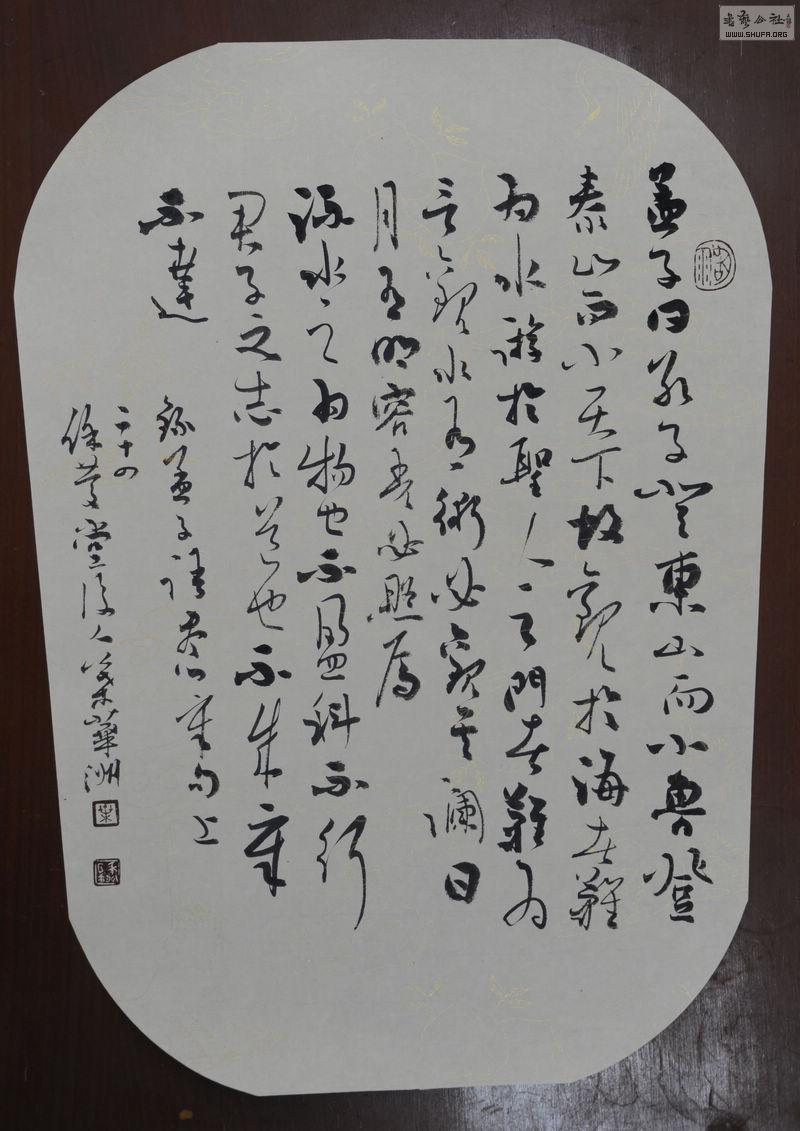 孟子曰孔子登東山而小魯登
泰山而小天下故觀於海者難
为水游於聖人之門者難为
言觀水有術必觀其瀾日
月有明容光必照焉
流水之为物也不盈科不行
君子之志於道也不成章
不達
錄孟子語盡心章句上
二十四
堂後人葉華洲
葉
書藝公社
WWW.SHUFA.ORG